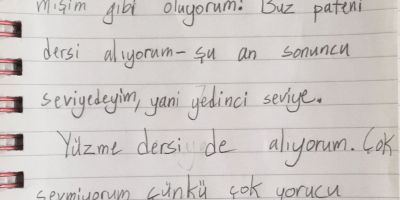 mişim gibi oluyorum. Buz pateni
dersi alıyorum- şu an sonuncu
seviyedeyim, yani yedinci seviye.
Yüzme dersi de alıyorum. Çok
sevmiyorum çünkü çok yorucu